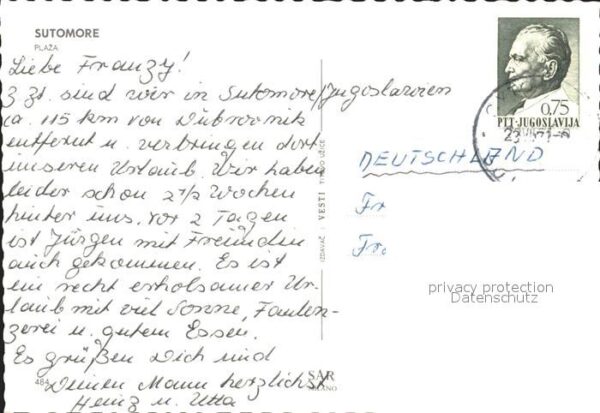 SUTOMORE
PLAŽA
Liebe Franzy!
Z Zt. sind wir in Sutomore/Jugoslawien
ca. 115 km von Dubrovnik
entfernt u. verbringen dort
unseren Urlaub. Wir haben
leider schon 2 1/2 Wochen
hinter uns. Vor 2 Tagen
ist Jürgen mit Freundin
auch gekommen. Es ist
ein recht erholsamer Ur-
laub mit viel Sonne, Faulen-
zerei u. gutem Essen.
Es grüßen Dich und
Deinen Mann herzlichst
Heinz u. Utta
484
IZDAVAČ: VESTI TITOVO UŽICE
SAR
0,75
PTT-JUGOSLAVIJA
DEUTSCHLAND
Fr
Fr.
privacy protection
Datenschutz